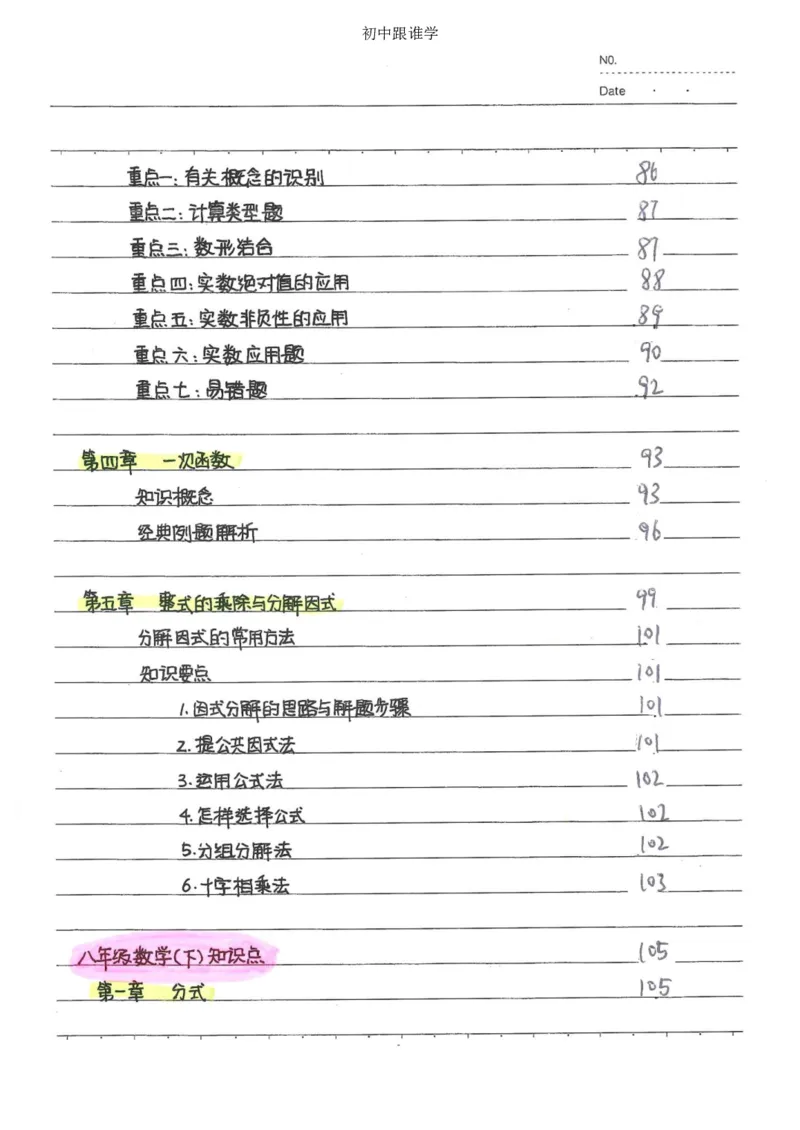 初中跟谁学
NO.
Date · ·
重点一:有关概念的识别 86
重点二:计算类型题 87
重点三:数形结合 87
重点四:实数绝对值的应用 88
重点五:实数非负性的应用 89
重点六:实数应用题 90
重点七:易错题 92
第四章 一次函数 93
知识概念 93
经典例题解析 96
第五章 整式的乘除与分解因式 99
分解因式的常用方法 101
知识要点 101
1.因式分解的思路与解题步骤 101
2.提公共因式法 101
3.运用公式法 102
4.怎样选择公式 102
5.分组分解法 102
6.十字相乘法 103
八年级数学(下)知识点 105
第一章 分式 105